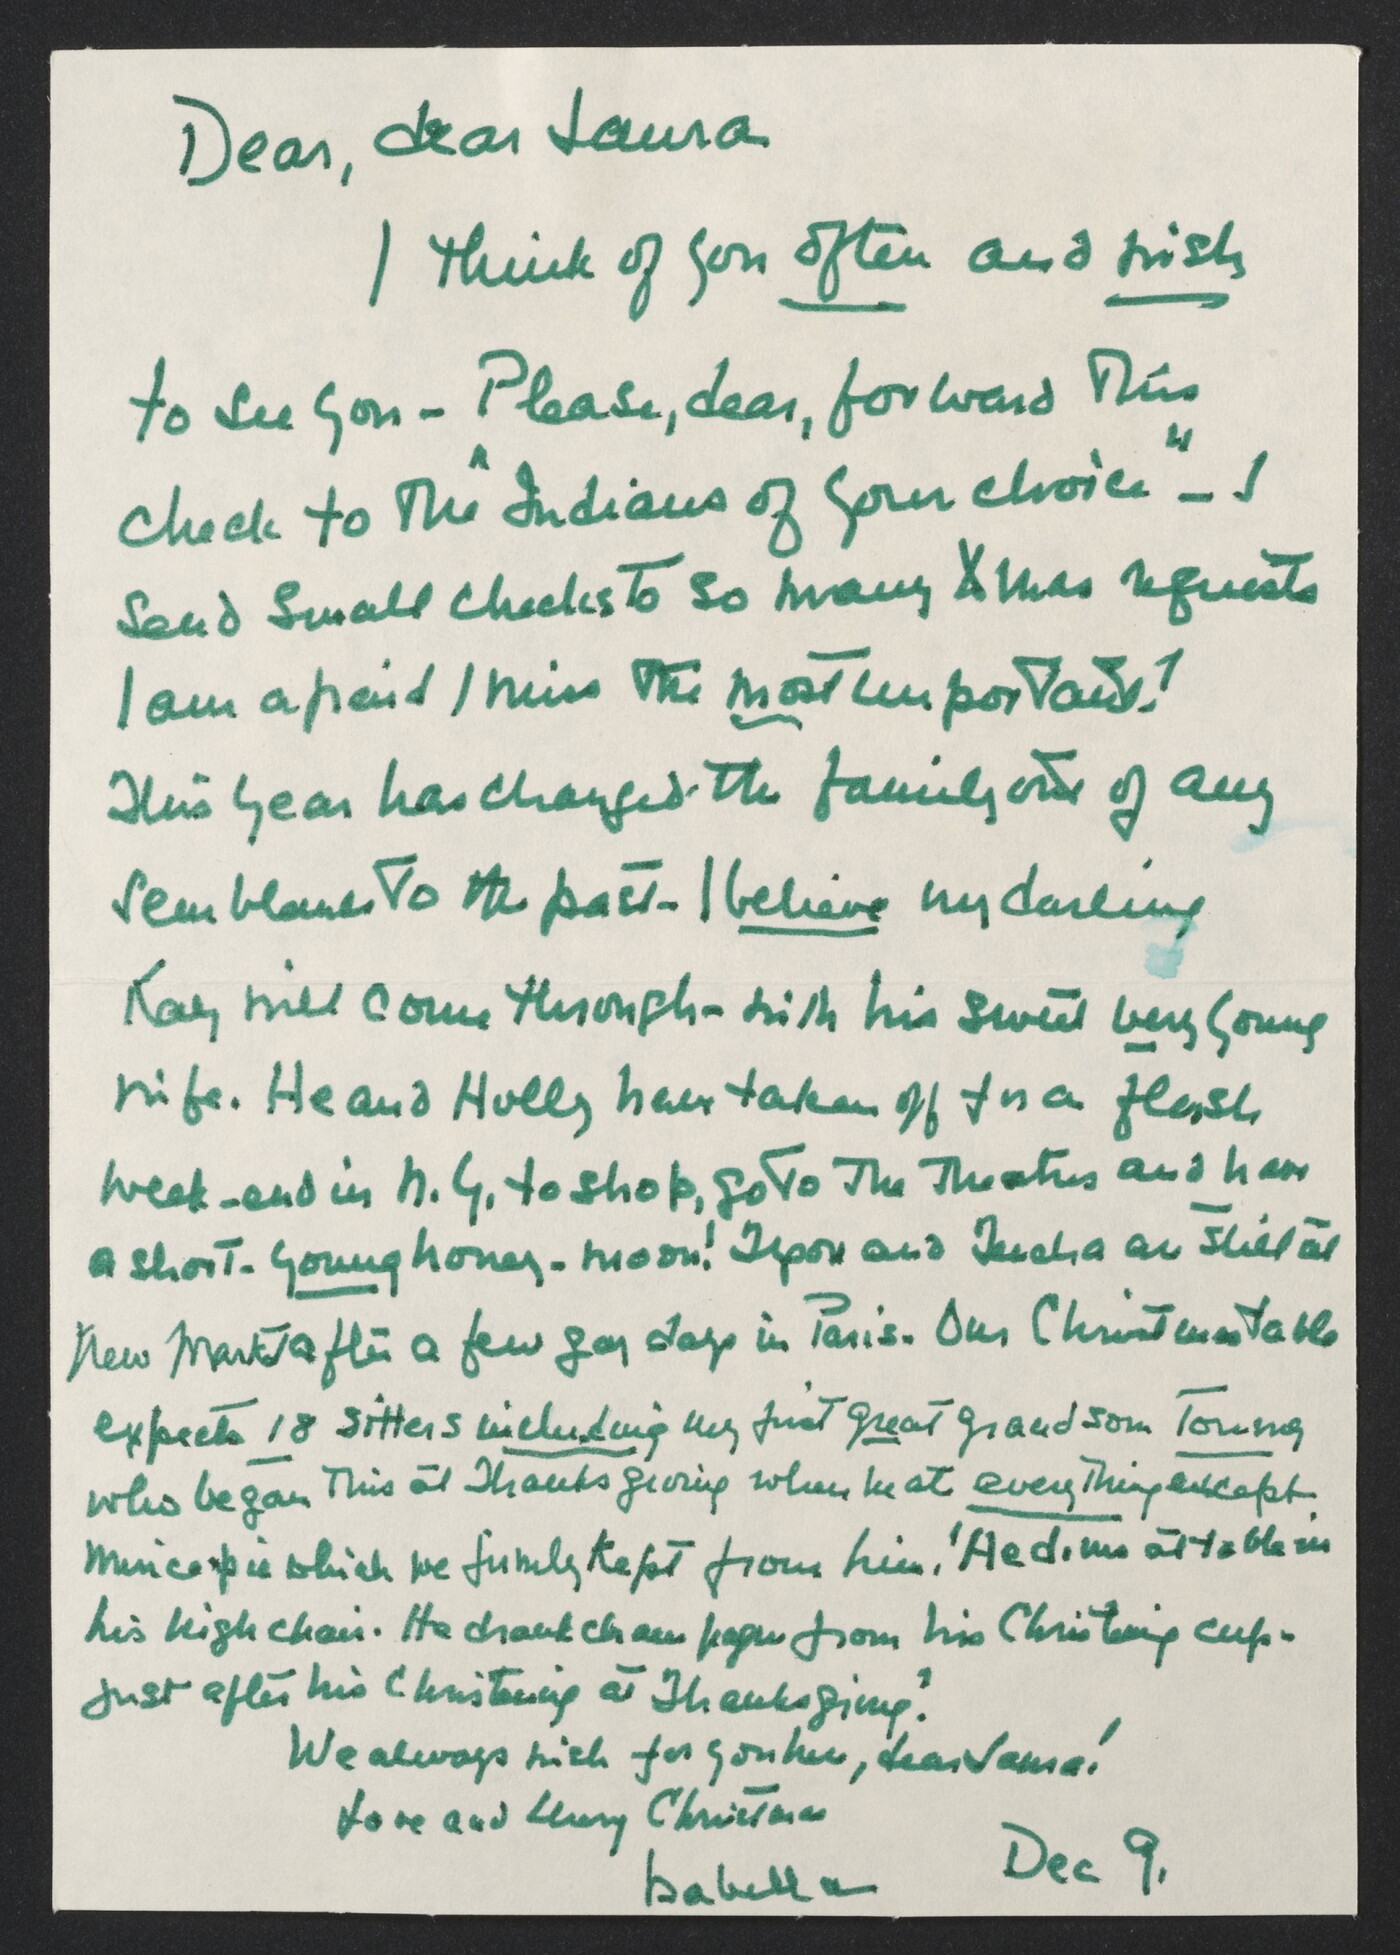 Dear, dear Laura
I think of you often and wish
to see you - Please, dear, forward This
check to The "Indians of your choice" - I
Send Small checks to so many Xmas requests
I am afraid I miss The most important!
This year has changed the family out of any
semblance To the past - I believe my darling
Kay will come through - with his sweet very young
wife. He and Holly have taken off for a flash
week-end in N.Y. to shop, go To The Theatres and have
a short - young honey-moon! and are Still at
New Market after a few gay days in Paris. Our Christmas table
expects 18 sitters including my first great grandson Tommy
who began This at Thanksgiving when he ate everything except
Mince pie which we firmly Kept from him! He dines at table in
his high chair. He drank champagne from his Christening cup -
just after his Christening at Thanksgiving!
We always wish for you here, dear Laura!
Love and Merry Christmas
Isabella
Dec 9.